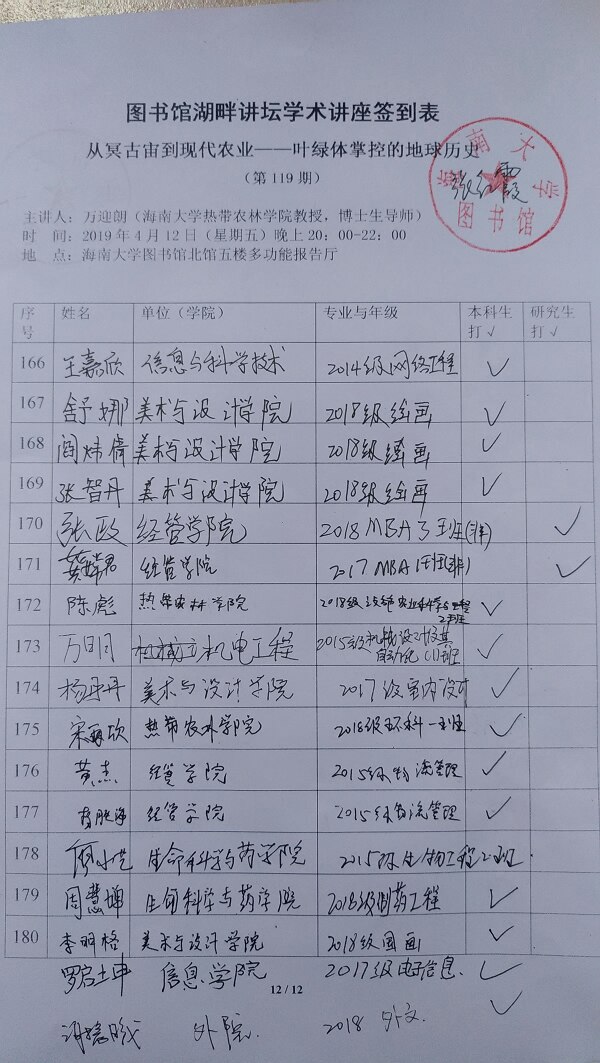 图书馆湖畔讲坛学术讲座签到表
从冥古宙到现代农业——叶绿体掌控的地球历史
(第 119 期)
海南大学
图书馆
张红霞
主讲人：万迎朗（海南大学热带农林学院教授，博士生导师）
时　间：2019 年 4 月 12 日（星期五）晚上 20：00-22：00
地　点：海南大学图书馆北馆五楼多功能报告厅
序号 姓名 单位（学院） 专业与年级 本科生打√ 研究生打√
166 王嘉欣 信息与科学技术 2014级网络工程 ✓
167 舒娜 美术与设计学院 2018级绘画 ✓
168 阎炜倩 美术与设计学院 2018级绘画 ✓
169 张智丹 美术与设计学院 2018级绘画 ✓
170 张政 经管学院 2018 MBA 3班(非) ✓
171 经管学院 2017 MBA ✓
172 陈彪 热带农林学院 2018级 2班 ✓
173 万明月 机械机电工程 2015级机械设计及其自动化(1)班 ✓
174 杨丹 美术与设计学院 2017级室内设计 ✓
175 宋 欣 热带农林学院 2018级环科一班 ✓
176 黄杰 经管学院 2015级物流管理 ✓
177 经管学院 2015级物流管理 ✓
178 廖小悦 生命科学与药学院 2015级生物工程二班
179 周慧坤 生命科学与药学院 2018级制药工程 ✓
180 李明格 美术与设计学院 2018级国画 ✓
罗启坤 信息学院 2017级电子信息 ✓
12 / 12
外院 2018 外文 ✓